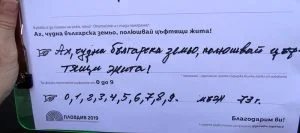 Ах, чудна българска земьо, полюшвай цъфтящи жита!
☞ Ах, чудна българска земьо, полюшвай цъф-
тящи жита!
0 до 9
☞ 0,1,2,3,4,5,6,7,8,9. мъж 73г.
ПЛОВДИВ 2019
Благодарим ви!